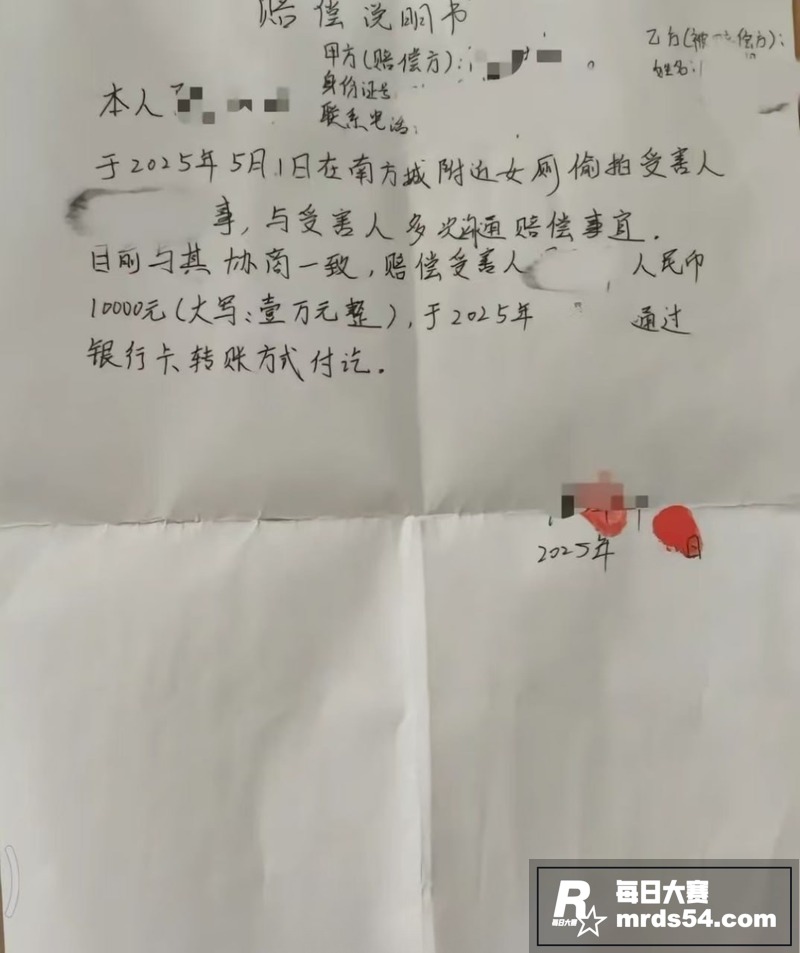 赔偿说明书
甲方(赔偿方):
乙方(被 偿方):
身份证号
姓名:
联系电话:
本人
于2025年5月1日在南方城附近女厕偷拍受害人
事,与受害人多次沟通赔偿事宜.
目前与其协商一致,赔偿受害人 人民币
10000元(大写:壹万元整),于2025年 通过
银行卡转账方式付讫.
2025年 日
每日大赛
mrds54.com
R
每日大赛